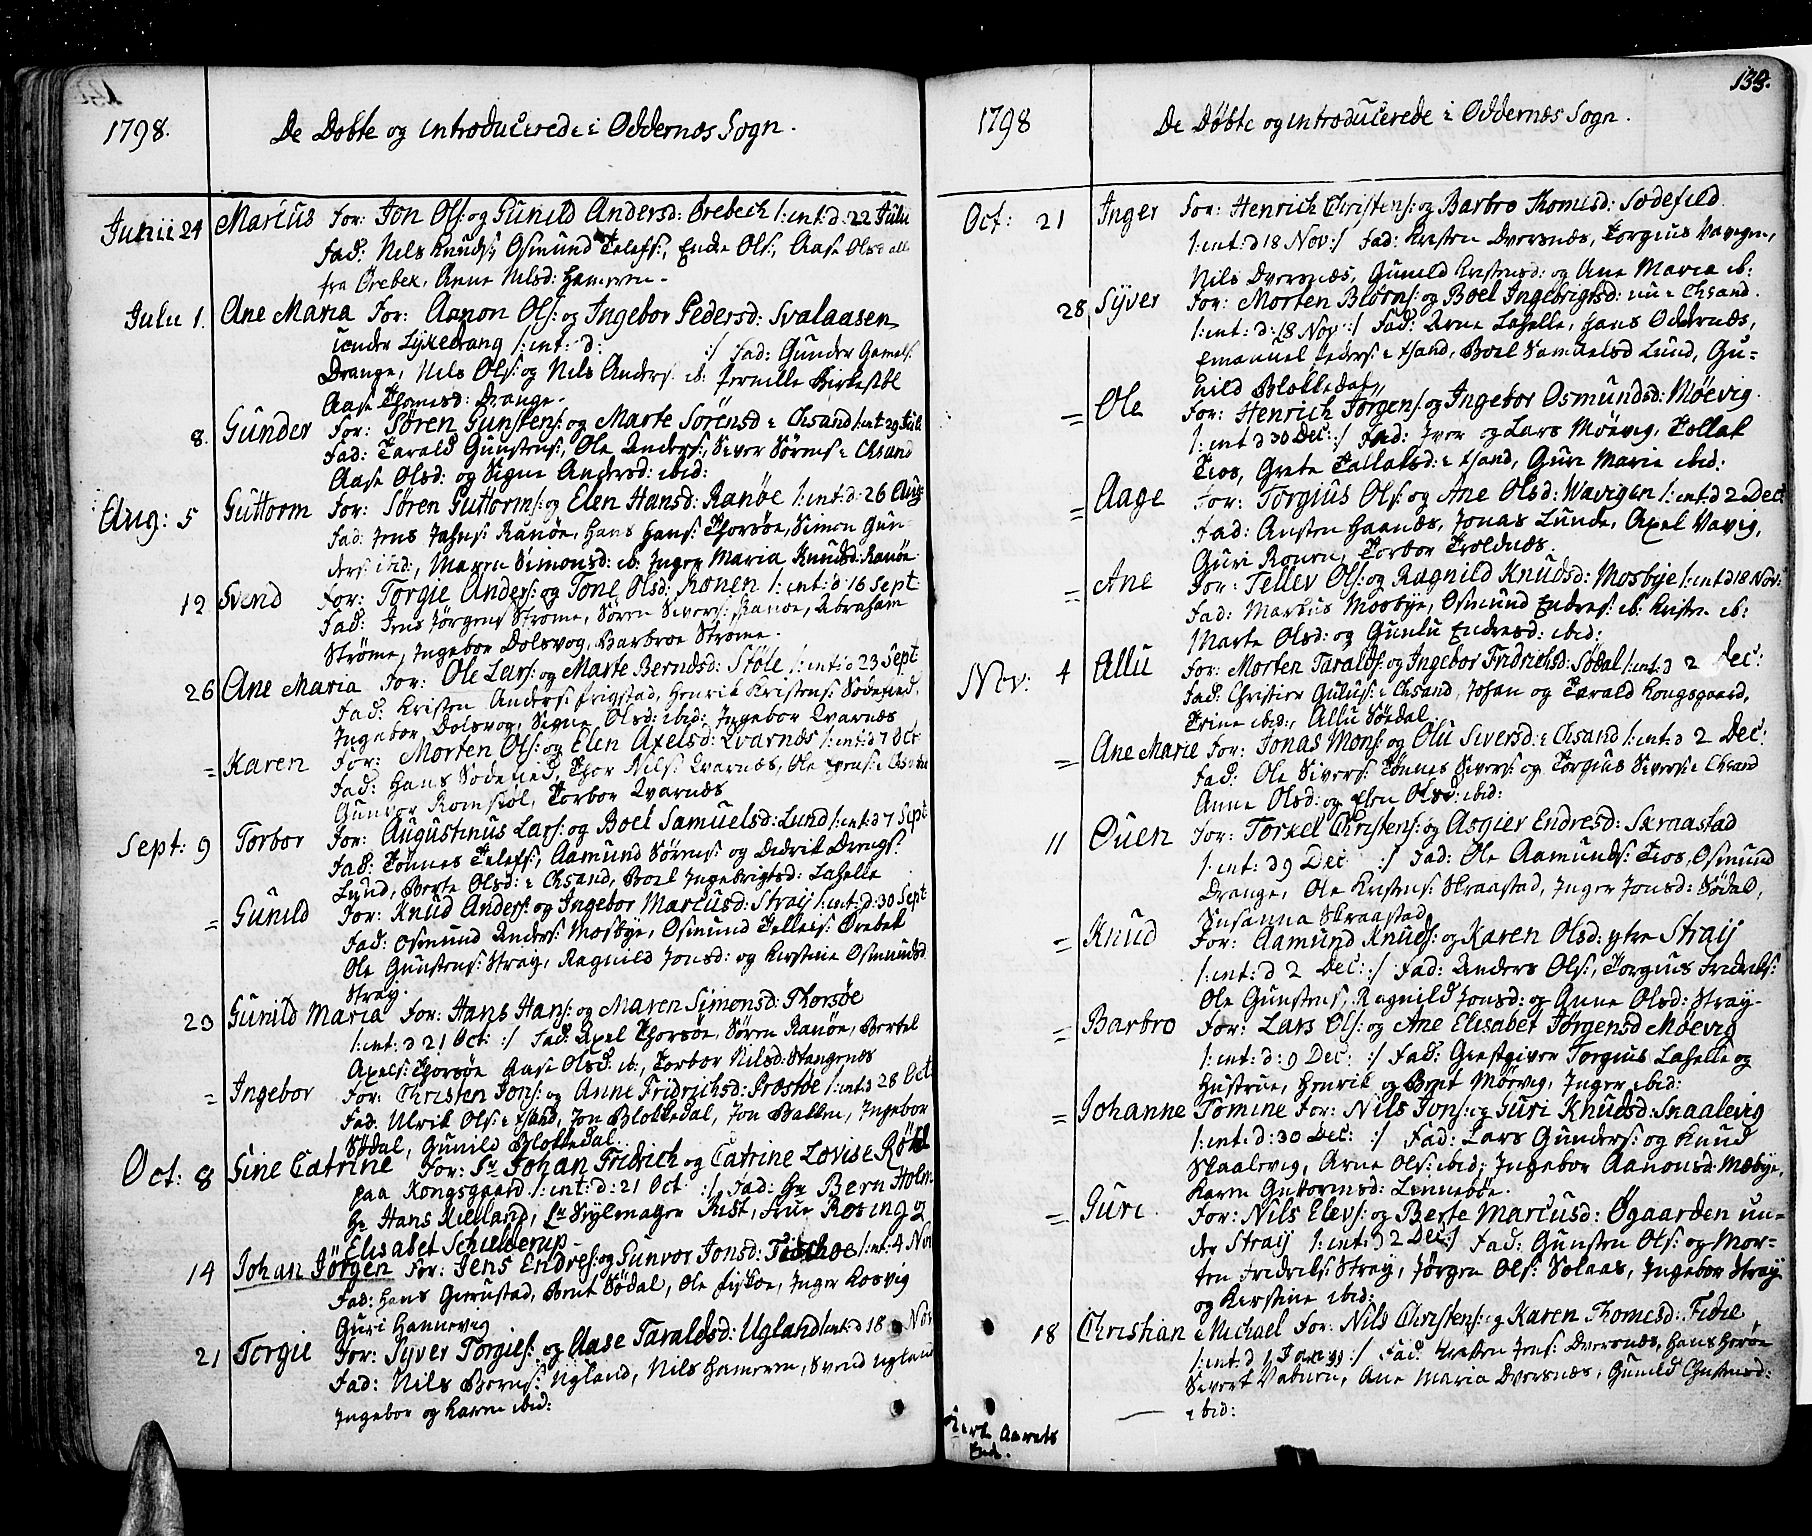 1798.
De Dobte og introducerede i Oddernæs Sogn.
Junii 24 Marcus For: Jon Ols: og Gunild Andersd: Örebech /: int: d: 22 Julii
Fad: Nils Knuds:, Osmund Telefs:, Endre Ols:, Aase Olsd alle
fra Örebek, Anne Nilsd: Hamren.
Julii 1. Ane Maria For: Aanon Ols: og Ingebor Pedersd: Svalaasen
under Lykedrang /: int: d: :/ Fad: Gunder Gamels:
Drange, Nils Ols: og Nils Anders: ib: Pernille Birkestöl
Aase Thomesd: Drange.
8. Gunder For: Sören Gunstens: og Marte Sörensd i Chsand /: int 29 Juli
Fad: Tarald Gunstens:, Ole Anders:, Siver Sörens: i Chsand
Aase Olsd: og Signe Andersd: ibid:
Aug: 5 Guttorm For: Sören Guttorms: og Elen Hansd: Ranöe /: int: d: 26 Aug:
Fad: Jens Jahns: Ranöe, Hans Hans: Thorsöe, Simon Gun-
ders: ibid:, Maren Simonsd: ib: Inger Maria Knudsd: Ranöe
12 Svend For: Torgie Anders: og Tone Olsd: Ronen /: int: d: 16 Sept:
Fad: Jens Jörgens: Ströme, Sören Sivers: Ranöe, Abraham
Ströme, Ingebor Dolsvog, Barbroe Ströme.
26 Ane Maria For: Ole Lars: og Marte Berndsd: Stöle /: int: d 23 Sept
Fad: Kristen Anders: Frigstad, Henrik Kristens: Södefied,
Ingebor Dolsvog, Signe Olsd: ibid: Ingebor Qvarnæs
= Karen For: Morten Ols: og Elen Axelsd: Qvarnæs /: int: d 7 Oct
Fad: Hans Sodefied, Thor Nils: Qvarnæs, Ole
Gunvor Romstöl, Torbor Qvarnæs
Sept: 9 Torbor For: Augustinus Lars: og Boel Samuelsd: Lund /: int: d 7 Sept
Fad: Tönnes Telefs:, Aamund Sörens: og Didrik Drengs:
Lund, Berte Olsd: i Chsand, Boel Ingebrigtsd: Lahelle
= Gunild For: Knud Anders: og Ingebor Marcusd: Straij /: int: d: 30 Sept
Fad: Osmund Anders: Mosbye, Osmund Tellefs: Örebek
Ole Gunstens: Straij, Ragnild Jonsd: og Kirstine Osmundsd
Straij.
23 Gunild Maria For: Hans Hans: og Maren Simonsd: Thorsöe
/: int: d 21 Oct: :/ Fad: Axel Thorsöe, Sören Ranöe, Bertel
Axels: Thorsöe Aase Olsd: ib:, Torbor Nilsd: Stangenæs
= Ingebor For: Christen Jons: og Anne Fridrichsd: Prostöe /: int: d 28 Oct
Fad: Ulrik Ols: i Chsand, Jon Blokkedal, Jon Bakken, Ingebor
Södal, Gunild Blokkedal.
Oct: 8 Sine Catrine For: Sr Johan Fridrich og Catrine Lovise
paa Kongsgaard /: int: d: 21 Oct :/ Fad: Hr Bern Holm:
Hr Hans Kielland, Seylmager Rist, Frue Rosing og
Elisabet Schielderup
14 Johan Jörgen For: Jens Endres: og Gunvor Jonsd: Fiskoe /: int: 4 Nov
Fad: Hans Gierustad, Bent Södal, Ole Fiskoe, Inger Kosvig
Guri Hannevig
21 Torgie For: Syver Torgies: og Aase Taraldsd: Ugland /: int: d 18 Nov
Fad: Nils Berns: Ugland, Nils Hamrem, Svend Ugland
Ingebor og Karen ibid:
139.
1798
De Döbte og introducerede i Oddernæs Sogn.
Oct: 21 Inger For: Henrich Christens: og Barbro Thomesd: Sodefied
/: int: d 18 Nov: :/ Fad: Kristen Dversnæs, Torgius Vavigen,
Nils Dversnæs, Gunild Kristensd: og Ane Maria ib:
28 Syver For: Morten Biörns: og Boel Ingebrigtsd: nu i Chsand.
/: int: d: 18 Nov :/ Fad: Arne Lahelle, Hans Oddernæs,
Emanuel Peders: i Chsand, Boel Samuelsd Lund, Gu-
nild Blokkedal
= Ole For: Henrich Jörgens: og Ingebor Osmundsd: Möevig.
/: int d 30 Dec: :/ Fad: Iver og Lars Möevig, Tollak
Tios, Grete Tallaksd: i Chsand, Guri Marie ibid:
= Aage For: Torgius Ols: og Ane Olsd: Wavigen /: int: d 2 Dec
Fad: Ansten Haanæs, Jonas Lunde, Axel Vavig,
Guri Ronen, Torbor Troldnæs.
= Ane For: Tellev Ols: og Ragnild Knudsd: Mosbye /: int d 18 Nov:
Fad: Marcus Mosbye, Osmund Endres: ib: Kristen ib:
Marte Olsd: og Gunlu Endresd: ibid:
Nov: 4 Allu For: Morten Taralds: og Ingebor Fridrichsd: Södal /: int: d 2 Dec:
Fad: Christian Gulus: i Chsand, Johan og Tarald Kongsgaard,
Trine ibid:, Allu Söedal
= Ane Marie For: Jonas Mons: og Olu Siversd: i Chsand /: int: d 2 Dec:
Fad: Ole Sivers: Tönnes Sivers: og Torgius Sivers: i Chsand
Anne Olsd: og Elen Olsd: ibid:
11 Ouen For: Torkel Christens: og Asgier Endresd: Skraastad
/: int: d 9 Dec :/ Fad: Ole Aamunds: Tios, Osmund
Drange, Ole Kristens: Skraastad, Inger Jonsd: Södal,
Susanna Skraastad
= Knud For: Aamund Knuds: og Karen Olsd: ytre Straij
/: int: d 2 Dec: :/ Fad: Anders Ols:, Torgius Fridriks:
Ole Gunstens:, Ragnild Jonsd: og Anne Olsd: Straij.
= Barbro For: Lars Ols: og Ane Elisabet Jörgensd Möevig
/: int: d: 9 Dec: :/ Fad: Giestgiver Torgius Lahelle og
Hustrue, Henrik og Bent Möevig, Inger ibid:
= Johanne Tomine For: Nils Jons: og Guri Knudsd: Skaalevig
/: int: d: 30 Dec: :/ Fad: Lars Gunders: og Knud
Skaalevig, Arne Ols: ibid:, Ingebor Aanonsd: Mæbye,
Karen Guttormsd: Linneböe.
= Guri For: Nils Elevs: og Berte Marcusd: Ögaarden un-
der Straij /: int: d 2 Dec: :/ Fad: Gunsten Ols: og Mor-
ten Fridriks: Straij, Jörgen Ols: Solaas, Ingebor Straij
og Kirstine ibid:
18 Christian Michael For: Nils Christens: og Karen Thomesd: Fidie
/: int: d 1 Jan: 99 :/ Fad: Kristen Jens: Dversnæs, Hans Heröe
Sivert Vatnen, Ane Maria Dversnæs, Gunild Christensd:
ibid:
Kirke Aarets
End.